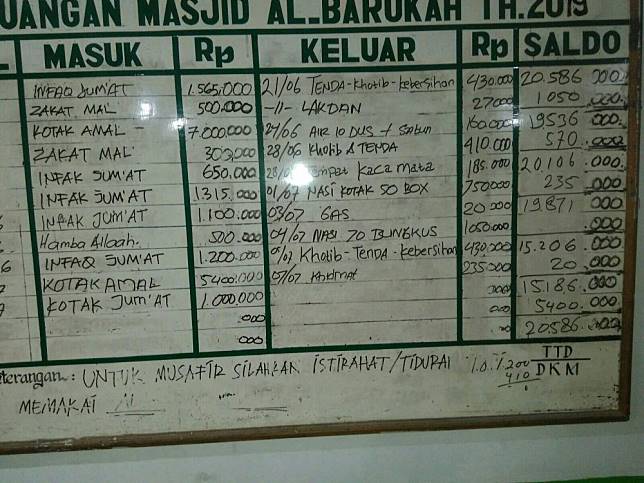 UANGAN MASJID AL-BAROKAH TH.2019
MASUK Rp KELUAR Rp SALDO
INFAQ JUM'AT 1.565.000 21/06 TENDA-Khotib-kebersihan 430.000 20.586.000
ZAKAT MAL 500.000 -11- LAKBAN 27000 1050.000
KOTAK AMAL - 7.000.000 24/06 AIR 10 DUS + Sabun 160.000 19536.000
ZAKAT MAL 300.000 28/06 Khotib & TENDA 410.000 570.000
INFAK JUM'AT 650.000 Tempat kaca mata 185.000 20.106.000
INFAK JUM'AT 1.315.000 01/07 NASI KOTAK 50 BOX 750000 235.000
INFAK JUM'AT 1.100.000 03/07 GAS 20000 19.871.000
Hamba Allaah. 500.000 04/07 NASI 70 BUNGKUS 1050.000 .000
6 INFAQ JUM'AT 1.200.000 Khotib-TENDA-kebersihan 430.000 15.206.000
KOTAK AMAL 5400.000 07/07 235000 20.000
KOTAK Jum'AT 1.000.000 000 15.186.000
.000 000 5400.000
000 20.586.000
eterangan: UNTUK MUSAFIR SILAHKAN ISTIRAHAT/TIDURAN TTD
MEMAKAI DKM